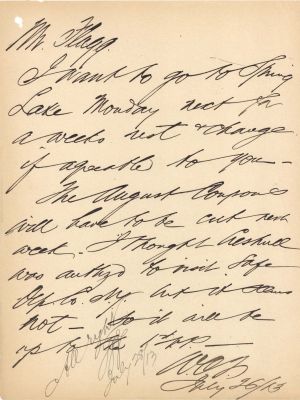 Mr. Flagg.
I want to go to Spring
Lake Monday next for
a weeks rest & change
if agreeable to you —
The August Coupons
will have to be cut next
week. I thought
was authzd to visit Safe
Dep Co. My. but it seems
not — So it will be
up to the
All right
July 25/13
July 25/13